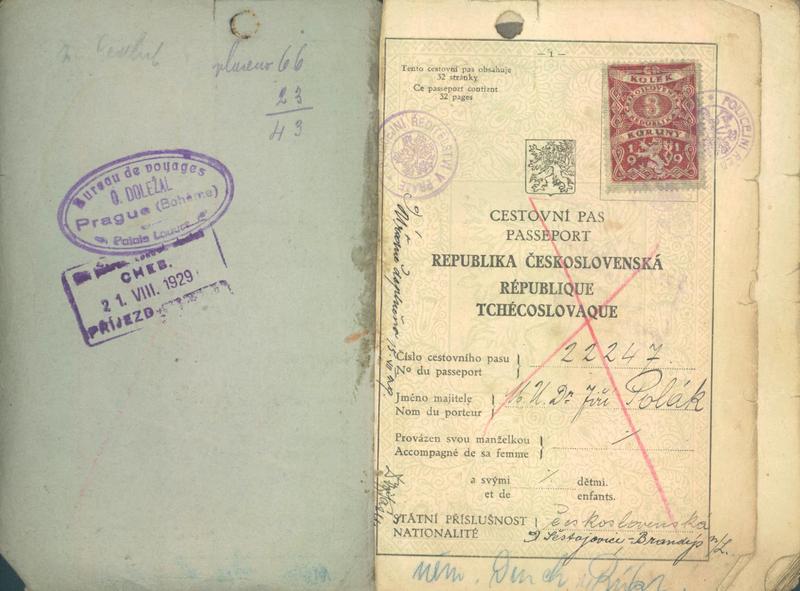 66
23
43
Bureau de voyages
O. DOLEŽAL
Prague (Bohême)
Palais
CHEB.
21. VIII. 1929
PŘÍJEZD
— 1 —
Tento cestovní pas obsahuje
32 stránky
Ce passeport contient
32 pages
KOLEK
8
KORUNY
1919
ŘEDITELSTVÍ V PRAZE
POLICEJNÍ
CESTOVNÍ PAS
PASSEPORT
REPUBLIKA ČESKOSLOVENSKÁ
RÉPUBLIQUE
TCHÉCOSLOVAQUE
Číslo cestovního pasu
No du passeport
22247.
Jméno majitele
Nom du porteur
M. U. Dr Jiří Polák
Provázen svou manželkou
Accompagné de sa femme
a svými dětmi.
et de enfants.
STÁTNÍ PŘÍSLUŠNOST
NATIONALITÉ
československá
Šestajovice-Brandýs n/L.